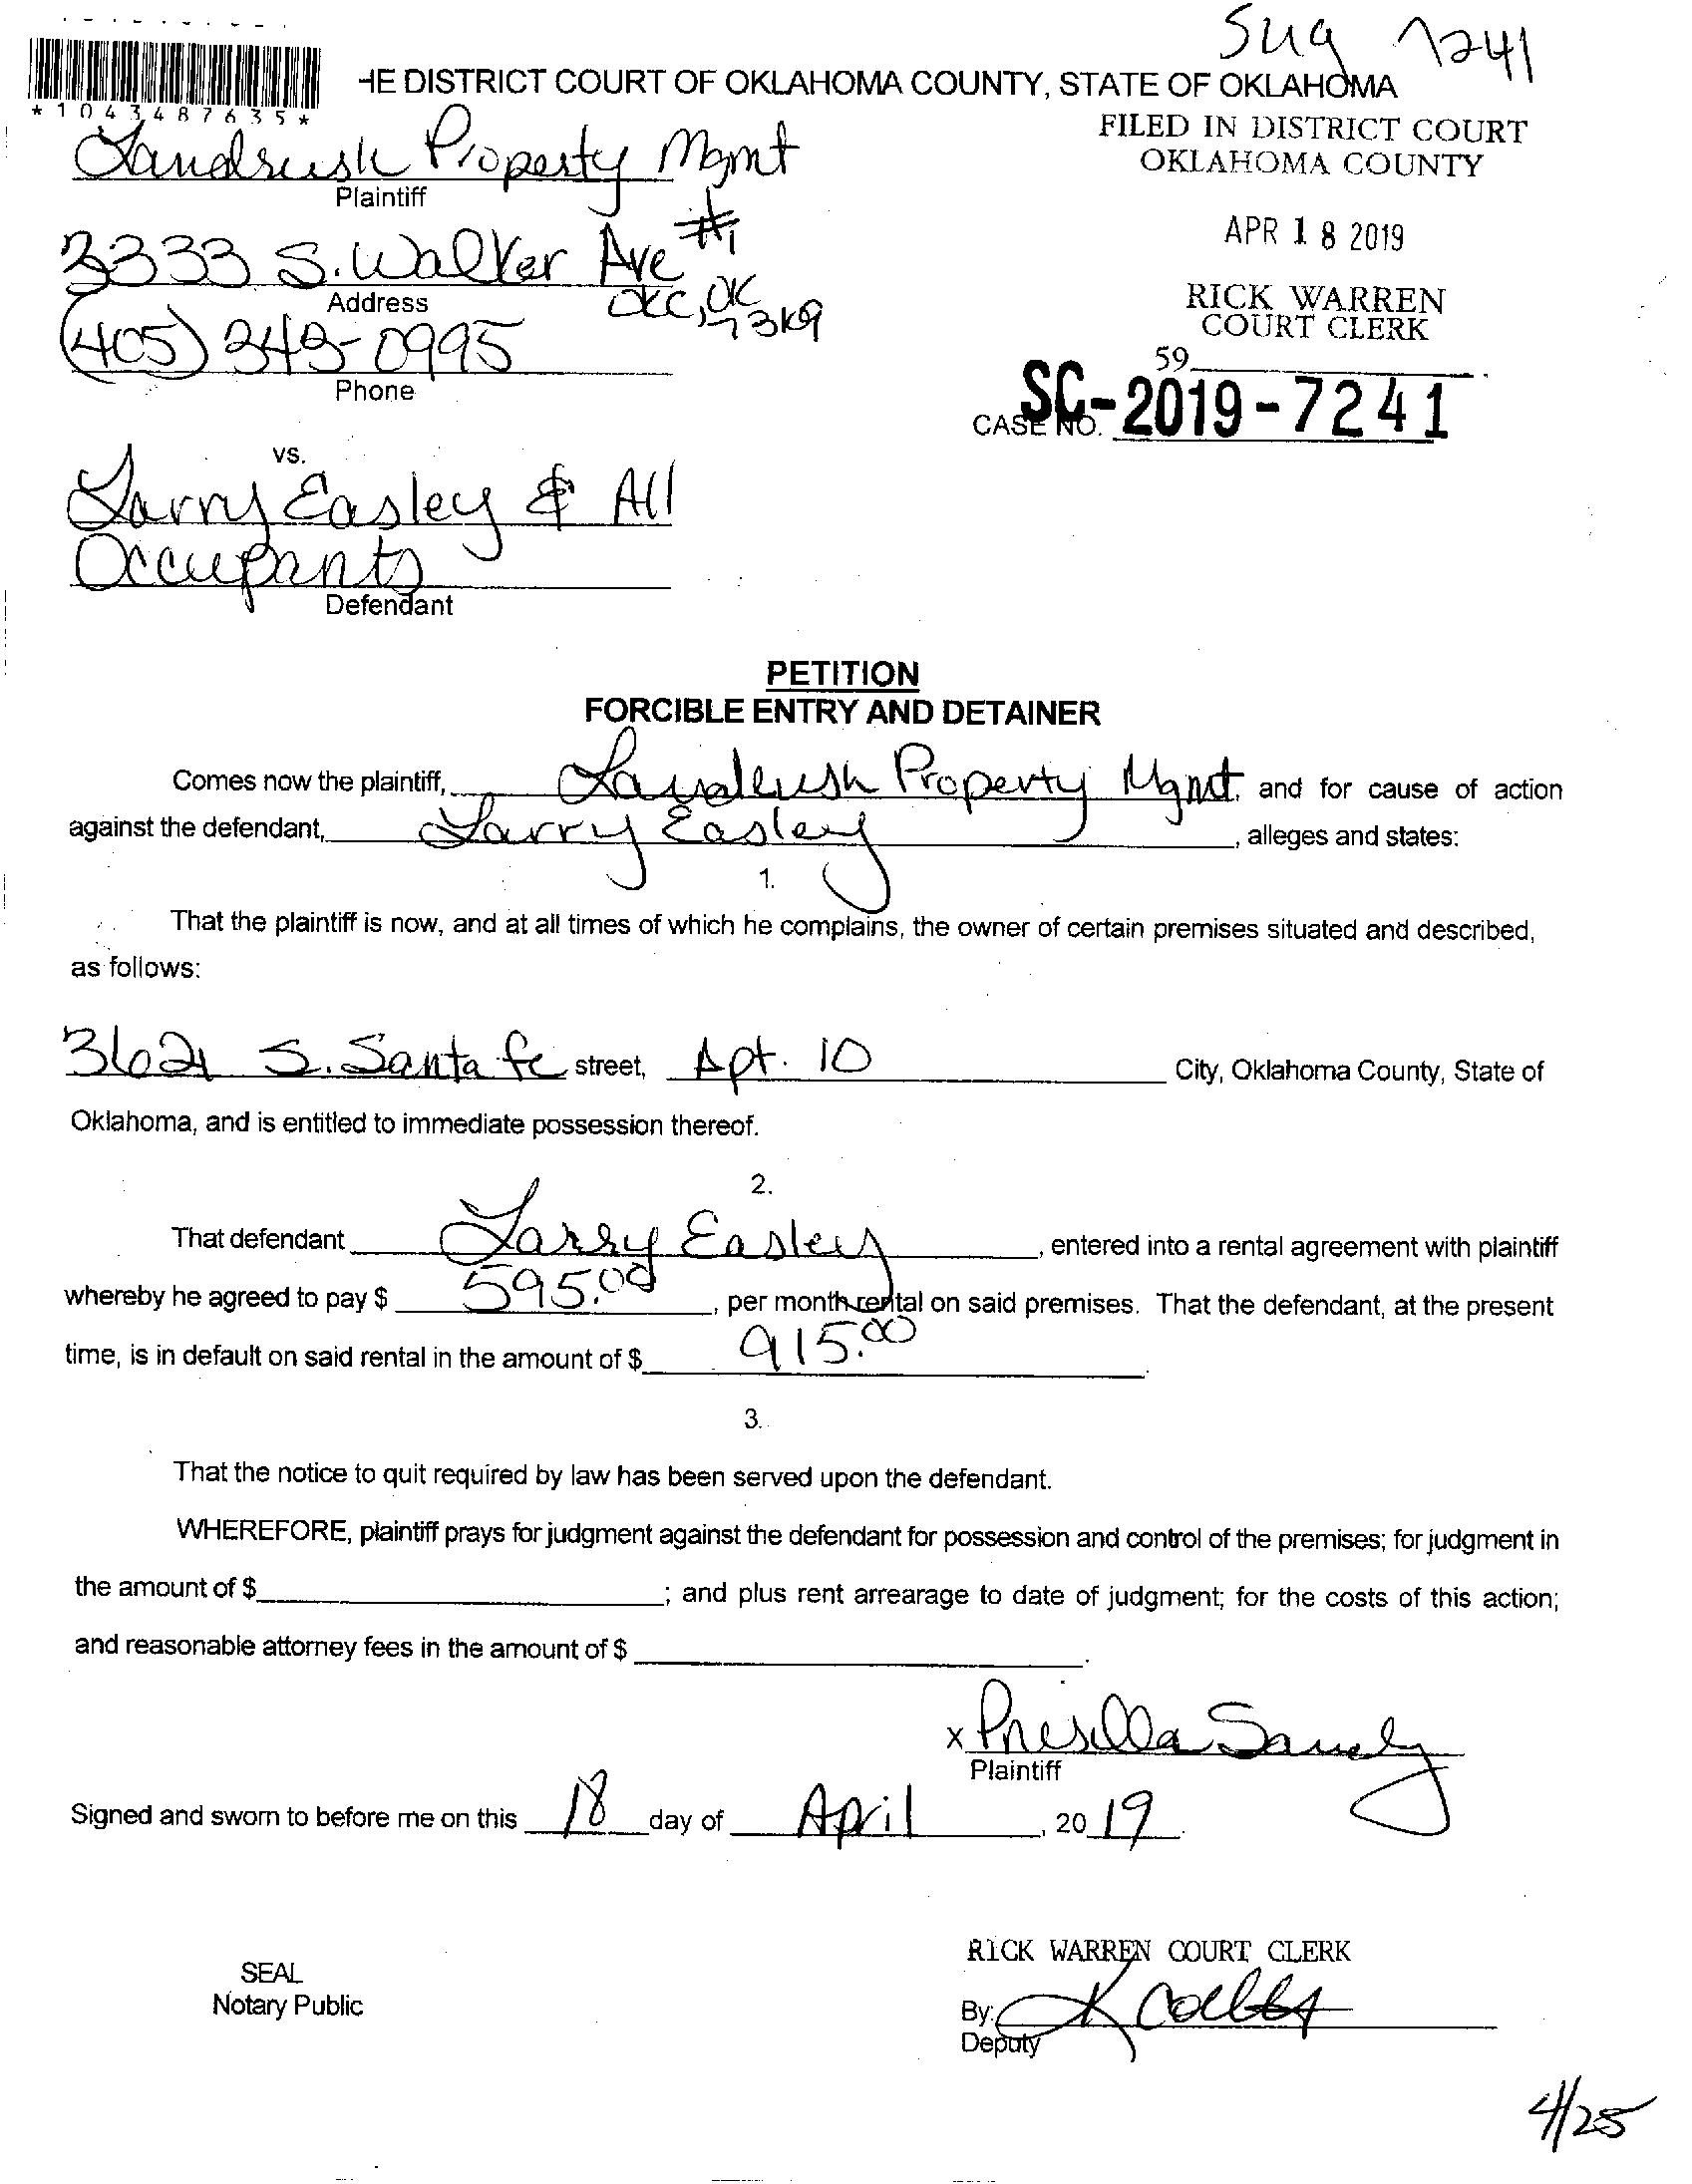 Sug 7241
*1043487635*
HE DISTRICT COURT OF OKLAHOMA COUNTY, STATE OF OKLAHOMA
FILED IN DISTRICT COURT
OKLAHOMA COUNTY
Landrush Property Mgmt
Plaintiff
APR 18 2019
3333 S. Walker Ave #1
Address
OKC, OK
RICK WARREN
COURT CLERK
(405) 343-0995
Phone
59
CASE NO. SC-2019-7241
vs.
Larry Easley & All
Occupants
Defendant
PETITION
FORCIBLE ENTRY AND DETAINER
Comes now the plaintiff, Landrush Property Mgmt. and for cause of action
against the defendant, Larry Easley, alleges and states:
1.
That the plaintiff is now, and at all times of which he complains, the owner of certain premises situated and described,
as follows:
3621 S. Santa Fe street, Apt. 10 City, Oklahoma County, State of
Oklahoma, and is entitled to immediate possession thereof.
2.
That defendant Larry Easley, entered into a rental agreement with plaintiff
whereby he agreed to pay $ 595.00, per month rental on said premises. That the defendant, at the present
time, is in default on said rental in the amount of $ 915.00.
3.
That the notice to quit required by law has been served upon the defendant.
WHEREFORE, plaintiff prays for judgment against the defendant for possession and control of the premises; for judgment in
the amount of $ ; and plus rent arrearage to date of judgment; for the costs of this action;
and reasonable attorney fees in the amount of $ .
x Prisilla
Plaintiff
Signed and sworn to before me on this 18 day of April, 2019.
RICK WARREN COURT CLERK
SEAL
Notary Public
By: K
Deputy
4/25